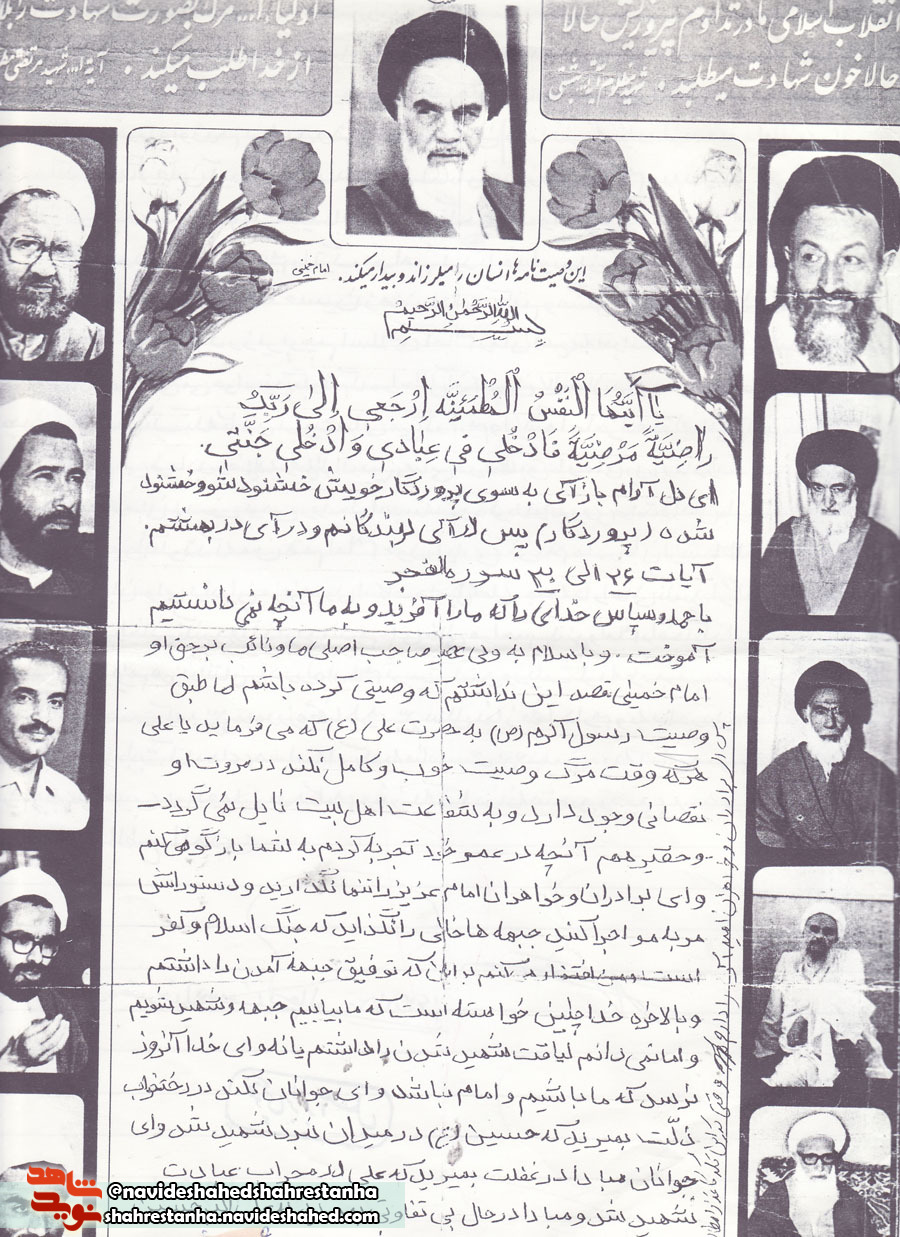 انقلاب اسلامی ما در تداوم پیروزیش حالا
حالا خون شهادت میطلبد. شهید مظلوم
اولیاء ا... مرگ بصورت شهادت را
از خدا طلب میکند. آیة ا... شهید مرتضی
این وصیت نامه ها انسان را میلرزاند و بیدار میکند. امام خمینی
بسم الله الرحمن الرحیم
یا أَیَّتُهَا النَّفْسُ الْمُطْمَئِنَّه اِرْجَعی إِلیٰ رَبِّکِ
راضِیَّةً مَرْضِیَّةً فَادْخُلی فی عِبادی وَ ادْخُلی جَنَّتی.
ای دل آرام باز آی به سوی پروردگار خویش خشنود شو و خشنود
شده (پروردگار) پس در آئی در بندگانم و در آی در بهشتم.
آیات ۲۶ الی ۳۰ سوره الفجر
با حمد و سپاس خدای را که ما را آفرید و به ما آنچه نمی دانستیم
آموخت. و با سلام به ولی عصر صاحب اصلی ما و نائب برحق او
امام خمینی قصد این نداشتم که وصیتی کرده باشم اما طبق
وصیت رسول اکرم (ص) به حضرت علی (ع) که می فرماید یا علی
هر که وقت مرگ وصیت خوب و کامل نکند در مروت او
نقصانی وجود دارد و به شفاعت اهل بیت نایل نمی گردد-
و حقیر هم آنچه در عمر خود تجربه کردم به شما بازگو می کنم
و ای برادران و خواهران امام عزیز را تنها نگذارید و دستوراتش
مو به مو اجرا کنید جبهه ها خالی را نگذارید که جنگ اسلام و کفر
است و من افتخار می کنم برایان که توفیق جبهه آمدن را داشتم
و بالاخره خدا چنین خواسته است که ما بیاییم جبهه و شهید شویم
و اما نمی دانم لیاقت شهید شدن را داشتم یا نه و ای خدا آنروز
نرسد که ما باشیم و امام نباشد و ای جوانان نکند در رختخواب
ذلت بمیرید که حسین (ع) در میدان نبرد شهید شد و ای
جوانان مبادا در غفلت بمیرید که علی در محراب عبادت
شهید شد و مبادا در حال بی تفاوتی
شاهد
نوید
@navideshahedshahrestanha
shahrestanha.navideshahed.com